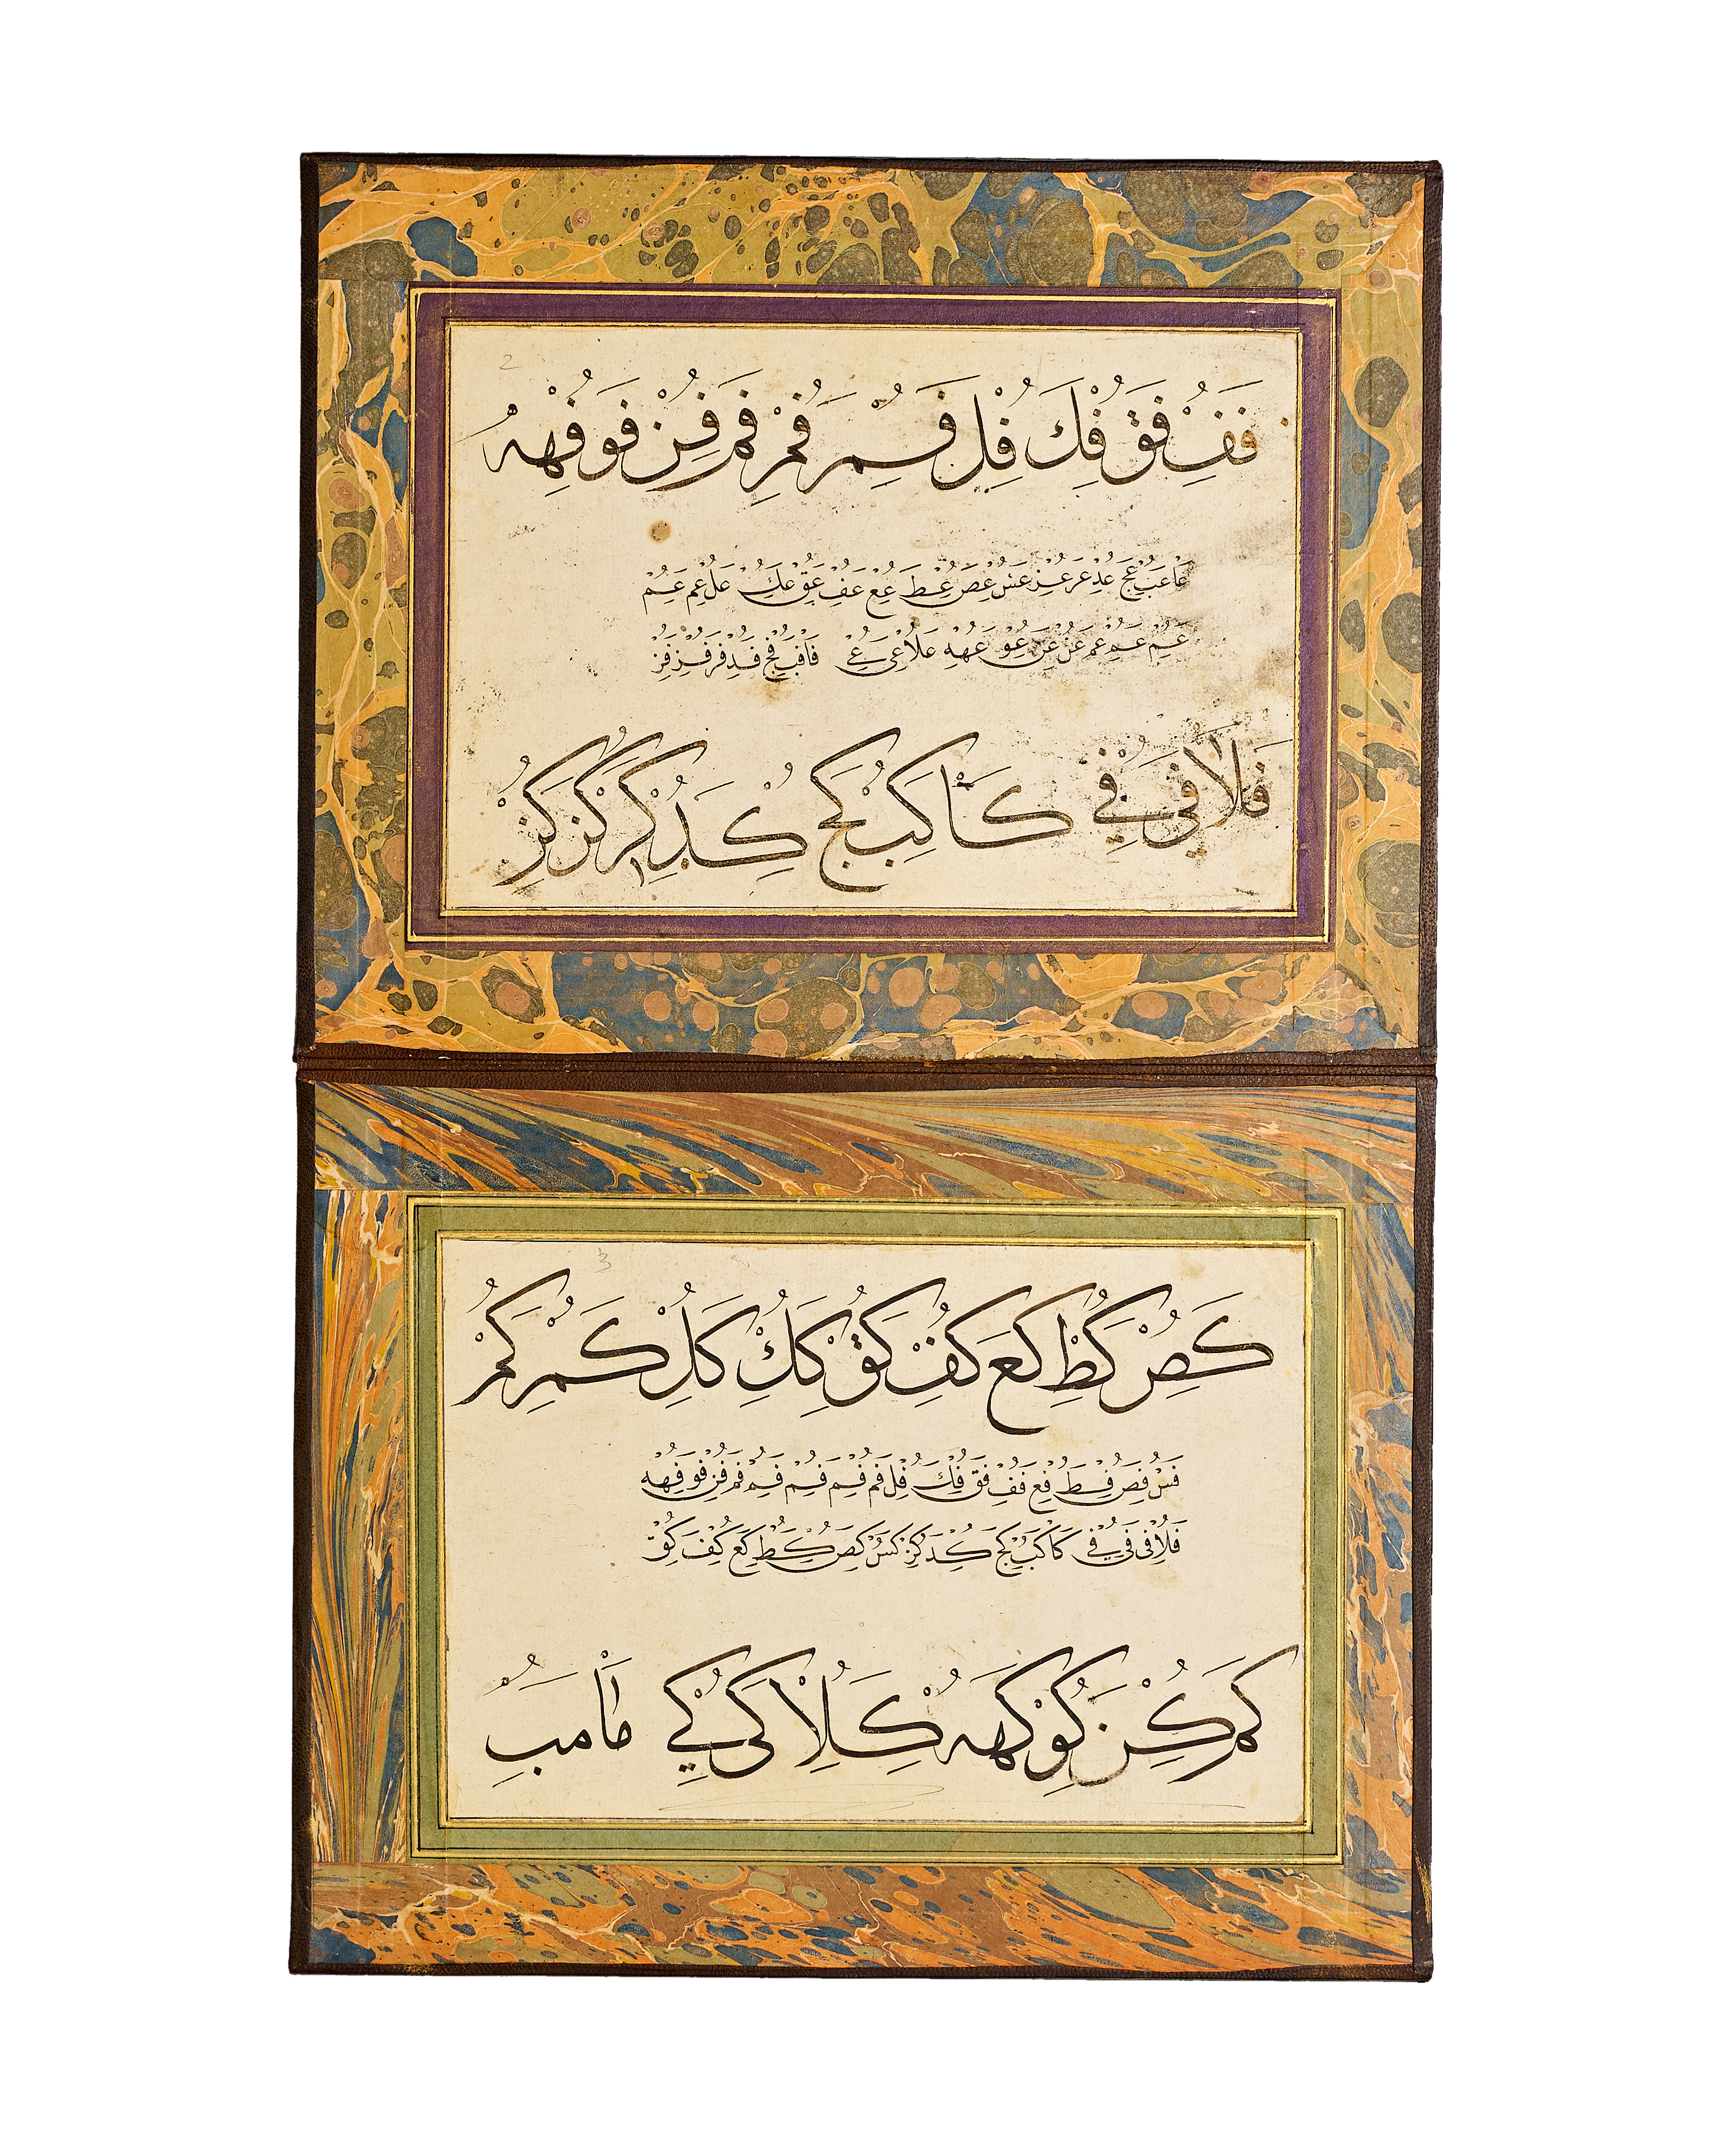 2
فف فق فك فل فم فم فم فن فو فه
عا عب عج عد عر عز عس عص عط عع عف عق عك عل عم عم
عم عم عم عن عن عو عه علا عى عى فا فب فج فد فر فر فز
فلا فى فى كا كب كج كد كر كز كز
3
كص كط كع كف كق كك كل كم كم
فس فص فط فع فف فق فك فل فم فم فم فم فم فن فو فه
فلا فى فى فى كا كب كج كد كز كس كص كط كع كف كق
كم كن كو كه كلا كى كى ما مب